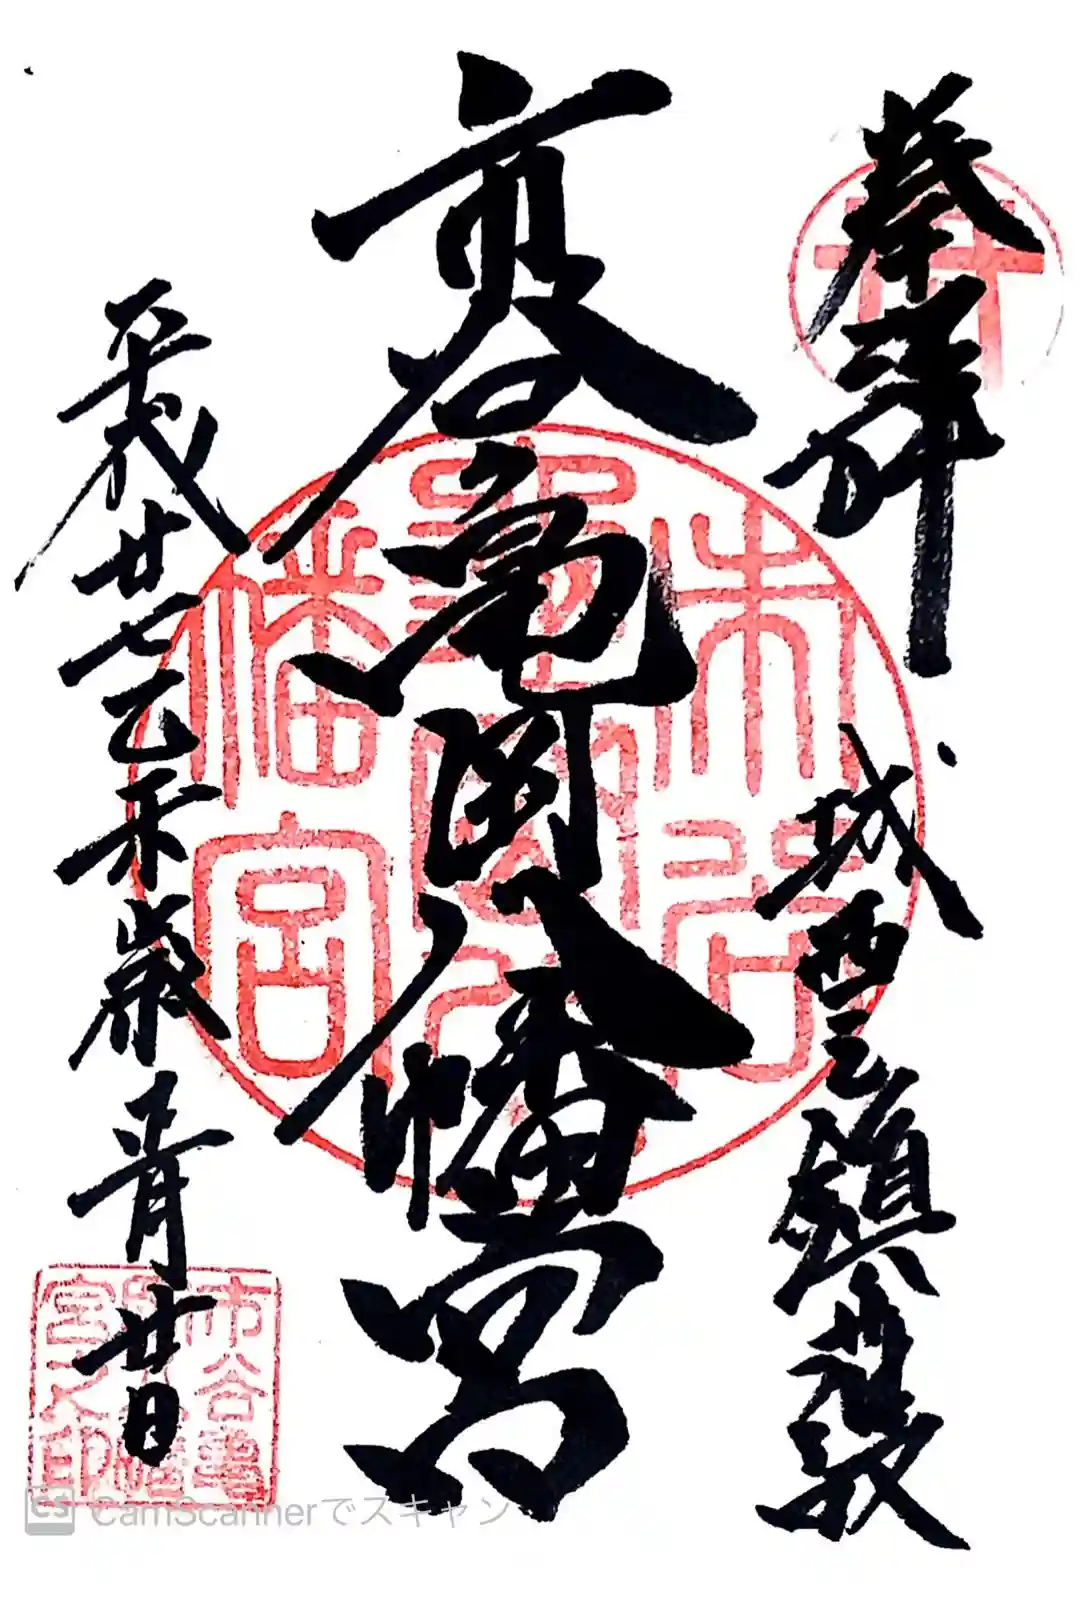 奉拝
城西之鎮
市谷亀岡八幡宮
平成廿七乙未歳 廿日
市谷亀岡八幡宮
市谷亀岡八幡宮之印
CS CamScannerでスキャン